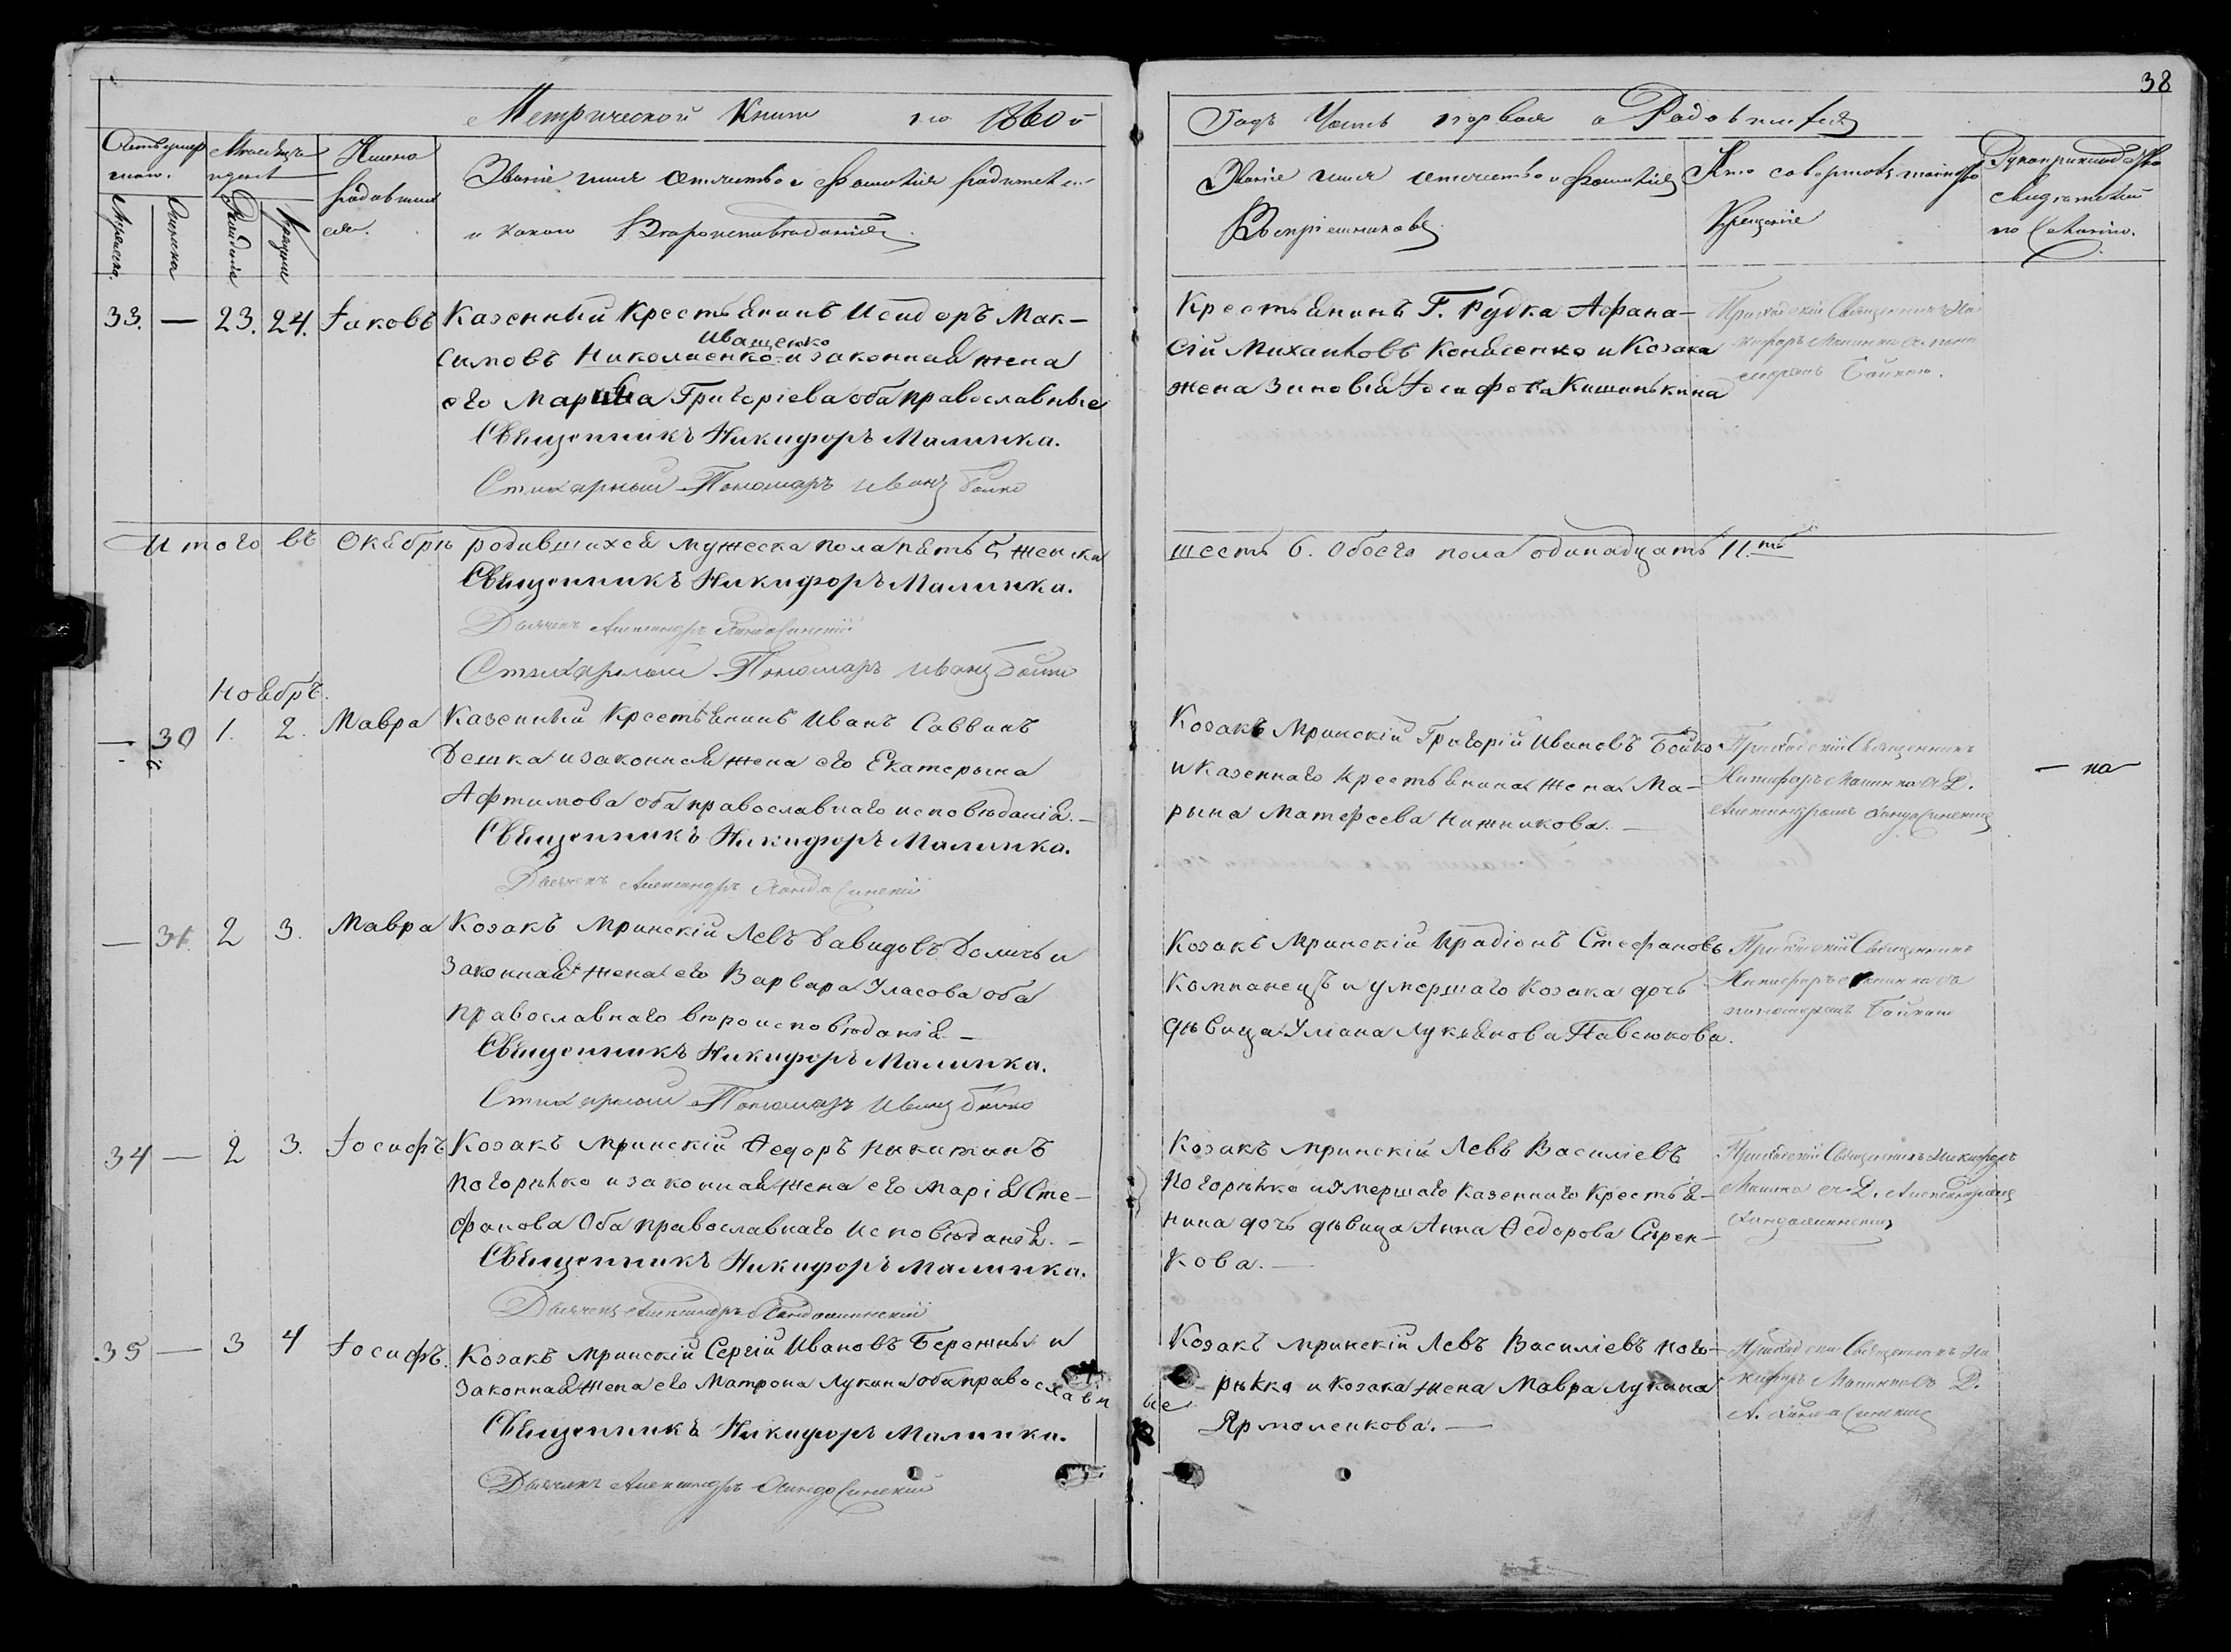 38
Метрической Книги на 1860й
Годъ Часть первая о Родившихся
Мужеска.
Женска
Рожденія
Крещенія
Имена
родившихся.
Званіе имя отчество и фамилія родителей
и какого Вероисповеданія.
Званіе имя отчество и фамилія
Воспріемниковъ
Кто совершалъ таинство
Крещенія
Рукоприкладство
свидетелей
по желанію.
33. — 23. 24. Іаковъ Казенный Крестьянинъ Исидоръ Мак-
Иващенко
симовъ Николаенко и законная жена
его Марина Григоріева оба православные
Священникъ Никифоръ Малинка.
Стихарный Пономарь Иванъ Бойко
Крестьянинъ Г. Рудка Афана-
сій Михаиловъ Конясенко и Козака
жена Зиновія Іосифова Кишинькина
Приходскій Священникъ Ни
кифоръ Малинка съ поно
маремъ Бойкою.
Итого въ Октябрѣ родившихся мужеска пола пять 5 женска
шесть 6. Обоего пола одинадцать 11.ть
Священникъ Никифоръ Малинка.
Дьячекъ Александръ
Стихарный Пономарь Иванъ Бойко
Ноябрь.
— 30 1. 2. Мавра Казенный Крестьянинъ Иванъ Саввинъ
Дешка и законная жена его Екатерына
Афтимова оба православнаго исповѣданія. —
Священникъ Никифоръ Малинка.
Дьячекъ Александръ
Козакъ Мринскій Григорій Ивановъ Бойко
и Казеннаго Крестьянина жена Ма-
рына Матфеева Нижникова. —
Приходскій Священникъ
Никифоръ Малинка съ Д.
Александромъ
— на —
— 31. 2 3. Мавра Козакъ Мринскій Левъ Давидовъ Доличъ и
законная жена его Варвара Уласова оба
православнаго вѣроисповѣданія. —
Священникъ Никифоръ Малинка.
Стихарный Пономарь Иванъ Бойко
Козакъ Мринскій Ирадіонъ Стефановъ
Компанецъ и умершаго Козака дочь
дѣвица Уліана Лукьянова Павсюкова.
Приходскій Священникъ
Никифоръ Малинка съ
пономаремъ Бойкою
34 — 2 3. Іосифъ Козакъ Мринскій Ѳедоръ Никитинъ
Погорѣлко и законная жена его Марія Сте-
фанова Оба православнаго Исповѣданія. —
Священникъ Никифоръ Малинка.
Дьячекъ Александръ
Козакъ Мринскій Левъ Василіевъ
Погорѣлко и Умершаго Казеннаго Крестья-
нина дочь дѣвица Анна Ѳедорова Сѣрен-
кова. —
Приходскій Священникъ Никифоръ
Малинка съ Д. Александромъ
35 — 3 4 Іосифъ. Козакъ Мринскій Сергій Ивановъ Бережный и
законная жена его Матрона Лукина оба православн
ые
Священникъ Никифоръ Малинка.
Дьячекъ Александръ
Козакъ Мринскій Левъ Василіевъ Пого-
рѣлко и Козака жена Мавра Лукина
Ярмоленкова. —
Приходскій Священникъ Ни
кифоръ Малинка съ Д.